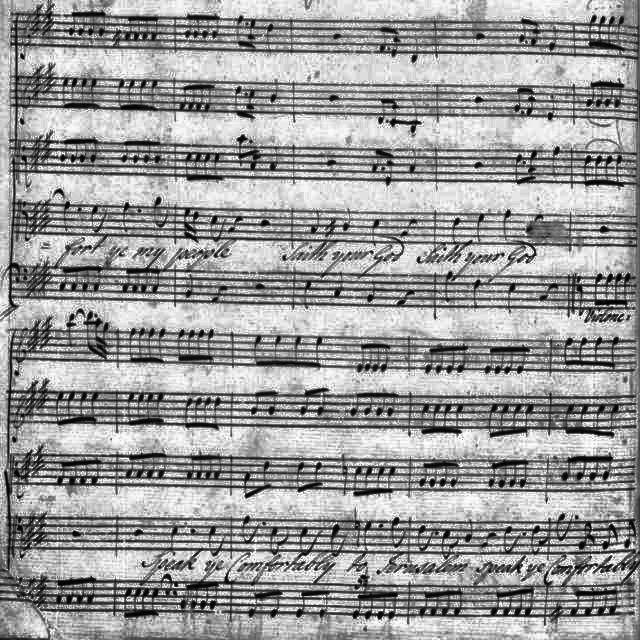 = fort ye my people Saith your God Saith your God
Speak ye Comfortably to Jerusalem speak ye Comfortably